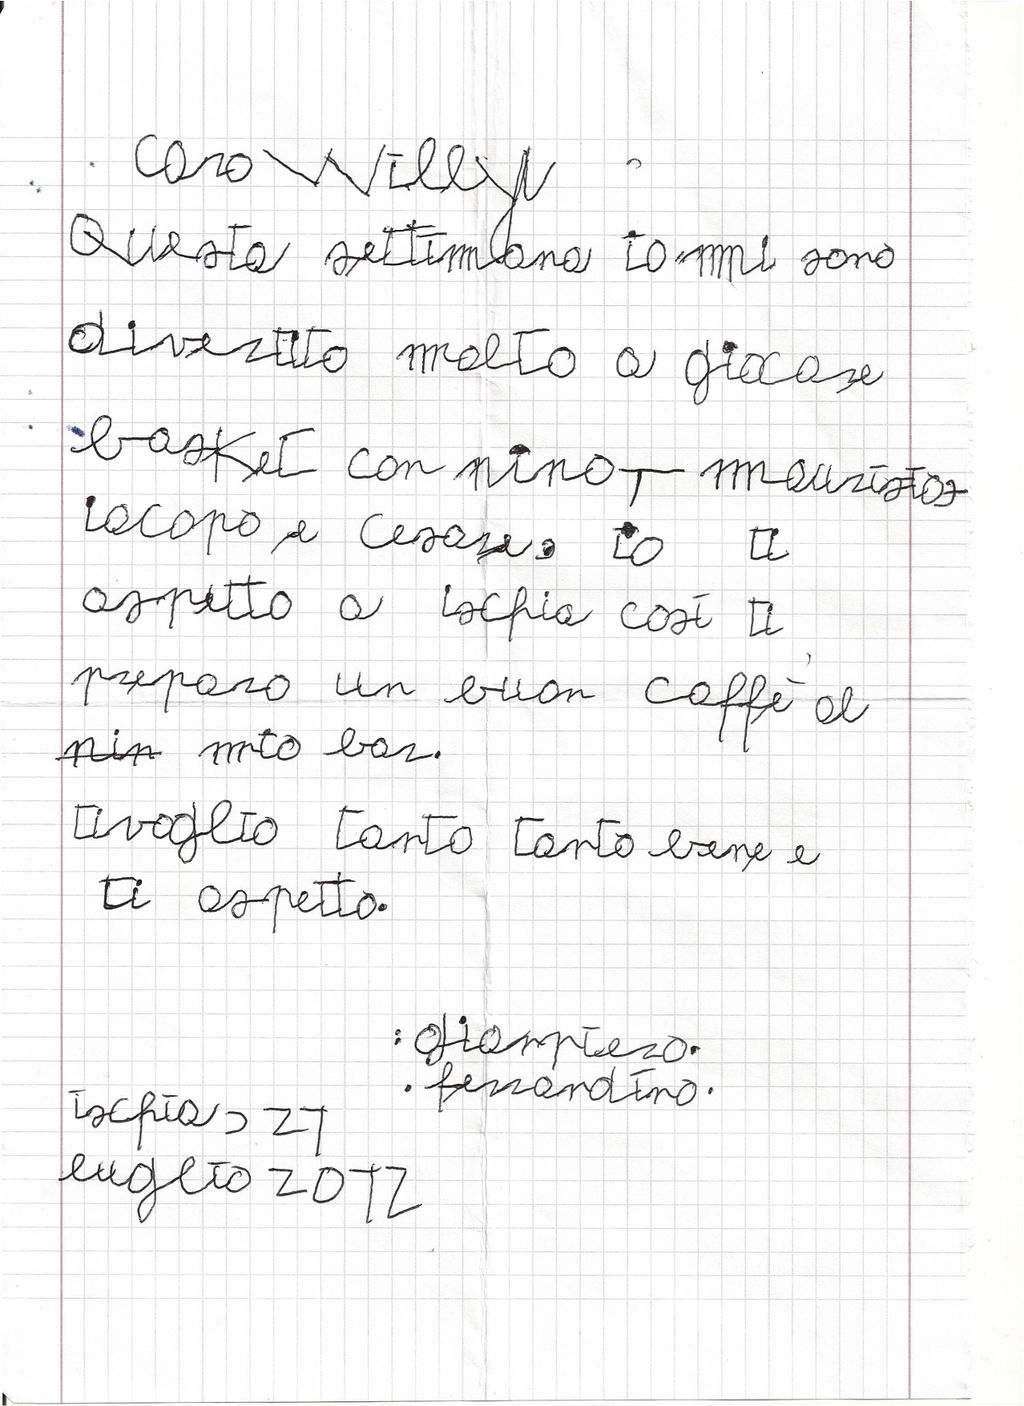 Caro Willy
Questa settimana io mi sono
divertito molto a giocare
basket con nino, maurizio,
iacopo, e Cesare, io ti
aspetto a ischia così ti
preparo un buon caffè al
nin mio bar.
tivoglio tanto tanto bene e
ti aspetto.
:gianpiero.
.ferrandino.
ischia, 27
luglio 2012